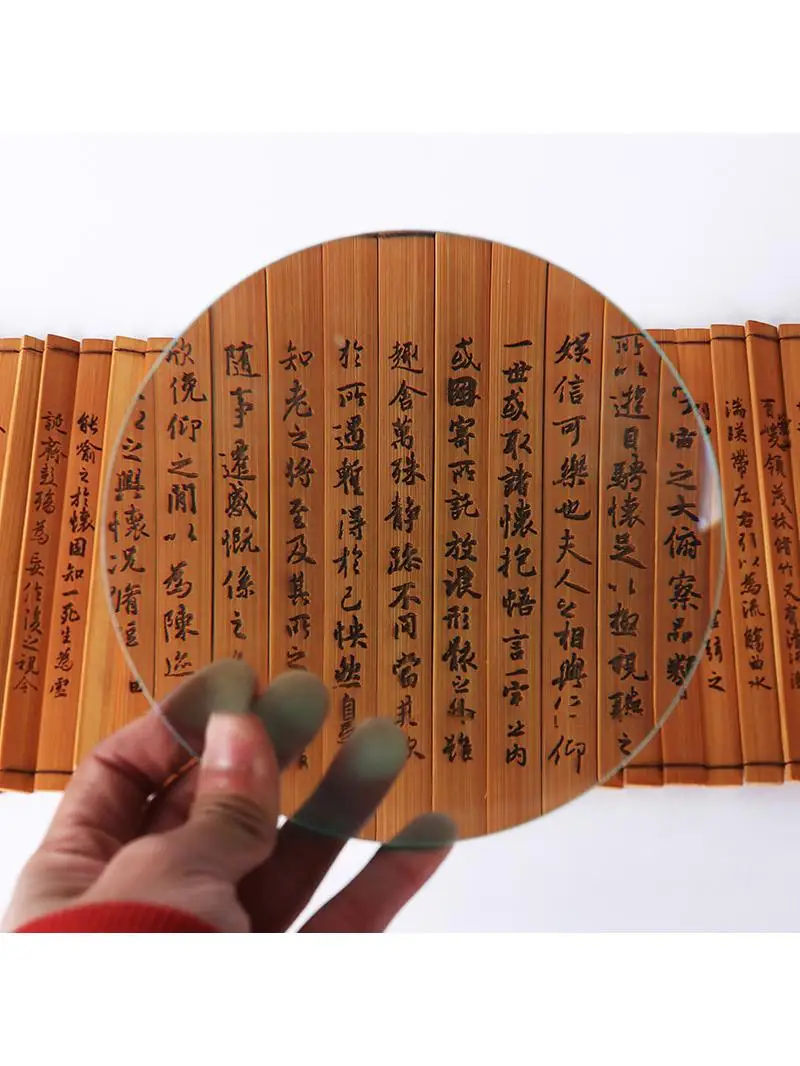 峻領茂林脩竹又有清流激
湍暎帶左右引以為流觴曲水
之
宙之大俯察品類
所以遊目騁懷足以極視聽之
娛信可樂也夫人之相與俯仰
一世或取諸懷抱悟言一室之內
或因寄所託放浪形骸之外雖
趣舍萬殊靜躁不同當其欣
於所遇暫得於己怏然自
知老之將至及其所之
隨事遷感慨係之
欣俛仰之間以為陳迹
以之興懷況脩短
能喻之於懷固知一死生為虛
誕齊彭殤為妄作後之視今